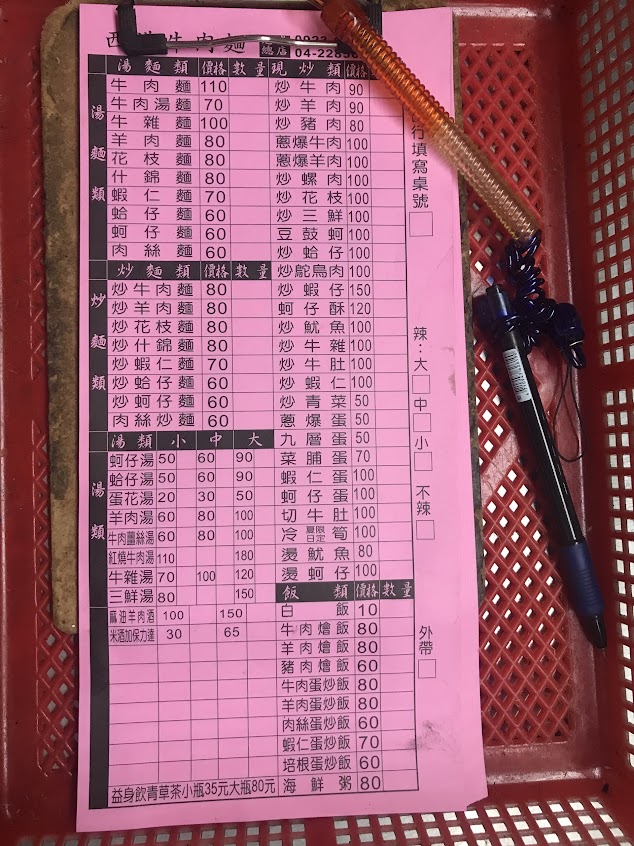 牛肉麵
總店 04-228
湯麵類 價格 數量
湯麵類
牛肉麵 110
牛肉湯麵 70
牛雜麵 100
羊肉麵 80
花枝麵 80
什錦麵 80
蝦仁麵 70
蛤仔麵 60
蚵仔麵 60
肉絲麵 60
炒麵類 價格 數量
炒麵類
炒牛肉麵 80
炒羊肉麵 80
炒花枝麵 80
炒什錦麵 80
炒蝦仁麵 70
炒蛤仔麵 60
炒蚵仔麵 60
肉絲炒麵 60
湯類 小 中 大
湯類
蚵仔湯 50 60 90
蛤仔湯 50 60 90
蛋花湯 20 30 50
羊肉湯 60 80 100
牛肉薑絲湯 60 80 100
紅燒牛肉湯 110 180
牛雜湯 70 100 120
三鮮湯 80 150
麻油羊肉酒 100 150
米酒加保力達 30 65
益身飲青草茶小瓶35元大瓶80元
現炒類 價格
炒牛肉 90
炒羊肉 90
炒豬肉 80
蔥爆牛肉 100
蔥爆羊肉 100
炒螺肉 100
炒花枝 100
炒三鮮 100
豆鼓蚵 100
炒蛤仔 100
炒鴕鳥肉 100
炒蝦仔 150
蚵仔酥 120
炒魷魚 100
炒牛雜 100
炒牛肚 100
炒蝦仁 100
炒青菜 50
蔥爆蛋 50
九層蛋 50
菜脯蛋 70
蝦仁蛋 100
蚵仔蛋 100
切牛肚 100
冷筍 夏限日定 100
燙魷魚 80
燙蚵仔 100
飯類 價格 數量
白飯 10
牛肉燴飯 80
羊肉燴飯 80
豬肉燴飯 60
牛肉蛋炒飯 80
羊肉蛋炒飯 80
肉絲蛋炒飯 60
蝦仁蛋炒飯 70
培根蛋炒飯 60
海鮮粥 80
行填寫桌號
辣：大 中 小 不辣
外帶